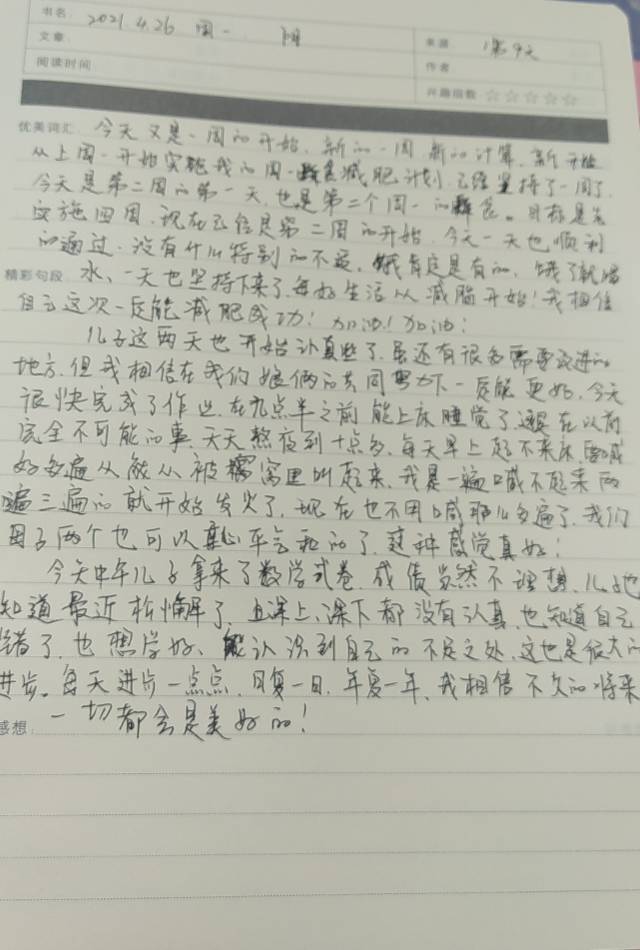 书名： 2021.4.26 周一 阴
文章： 来源 第9天
阅读时间 作者
兴趣指数 ☆☆☆☆☆
优美词汇 今天又是一周的开始，新的一周，新的计算，新开始
从上周一开始实施我的周一断食减肥计划，已经坚持了一周了，
今天是第二周的第一天，也是第二个周一的断食。目标是先
实施四周，现在已经是第二周的开始，今天一天也顺利
的通过，没有什么特别的不适，饿肯定是有的，饿了就喝
精彩句段 水、一天也坚持下来了，每好生活从减脂开始！我相信
自己这次一定能减肥成功！加油！加油！
儿子这两天也开始认真些了，虽还有很多需要改进的
地方，但我相信在我们娘俩的共同努力下一定能更好，今天
很快完成了作业，在九点半之前能上床睡觉了，这在以前
完全不可能的事，天天熬夜到十点多，每天早上起不来床，要喊
好多遍从敞从被窝里叫起来，我是一遍喊不起来两
遍三遍的就开始发火了，现在也不用喊那么多遍了，我们
母子两个也可以心平气和的了，这种感觉真好！
今天中午儿子拿来了数学试卷，成绩虽然不理想，儿子也
知道最近松懈了，且课上、课下都没有认真，也知道自己
错了，也想学好、能认识到自己的不足之处，这也是很大的
进步。每天进步一点点，日复一日，年复一年，我相信不久的将来
感想： 一切都会是美好的！